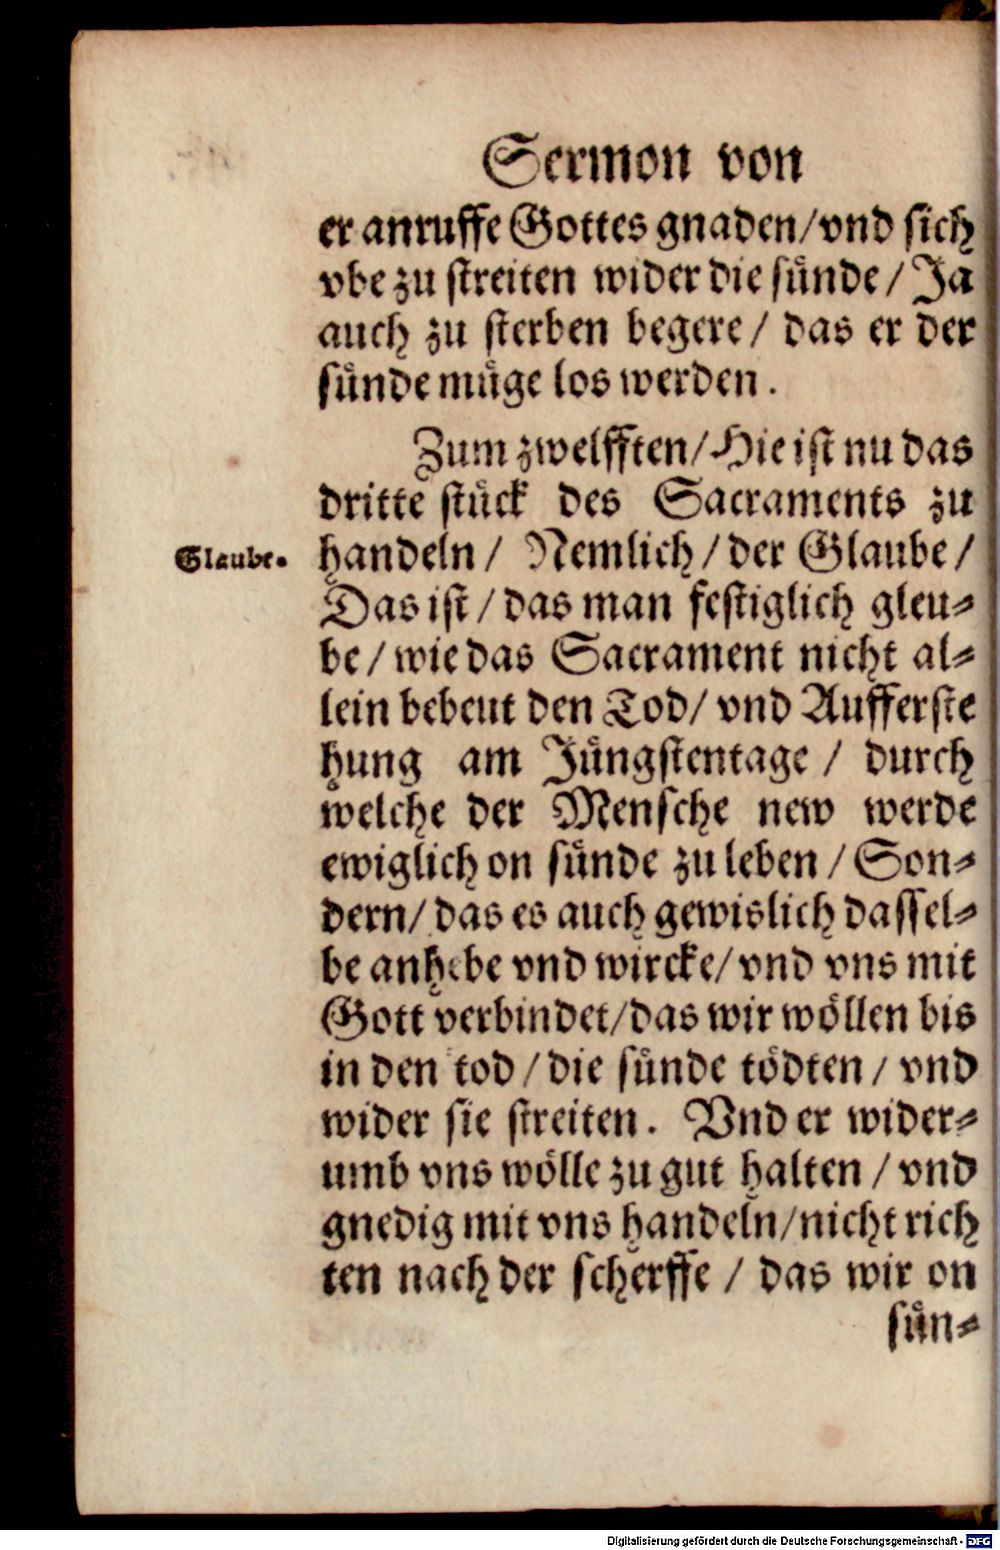 Sermon von
er anruffe Gottes gnaden/vnd sich
vbe zu streiten wider die sünde/Ja
auch zu sterben begere/ das er der
sünde müge los werden.
Zum zwelfften/Hie ist nu das
dritte stück des Sacraments zu
Glaube.
handeln/ Nemlich/der Glaube/
Das ist/das man festiglich gleu-
be/wie das Sacrament nicht al-
lein bebeut den Tod/ vnd Aufferste
hung am Jüngstentage/ durch
welche der Mensche new werde
ewiglich on sünde zu leben/Son-
dern/ das es auch gewislich dassel-
be anhebe vnd wircke/vnd vns mit
Gott verbindet/das wir wöllen bis
in den tod/die sünde tödten/ vnd
wider sie streiten. Vnd er wider-
umb vns wölle zu gut halten/vnd
gnedig mit vns handeln/nicht rich
ten nach der scherffe/ das wir on
sün-
Digitalisierung gefördert durch die Deutsche Forschungsgemeinschaft - DFG